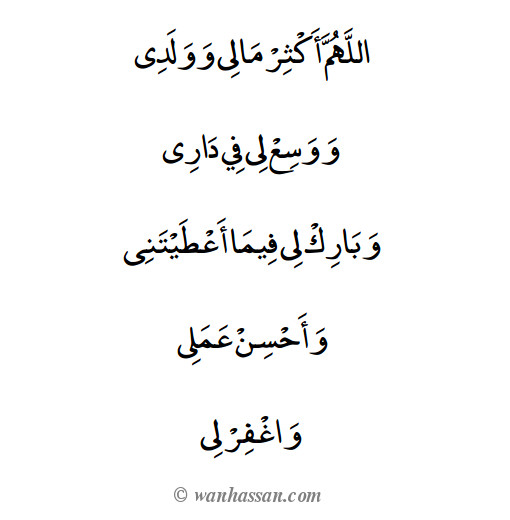 اللَّهُمَّ أَكْثِرْ مَالِى وَوَلَدِى
وَوَسِعْ لِى فِي دَارِى
وَبَارِكْ لِى فِيمَا أَعْطَيْتَنِى
وَأَحْسِنْ عَمَلِى
وَاغْفِرْ لِى
© wanhassan.com